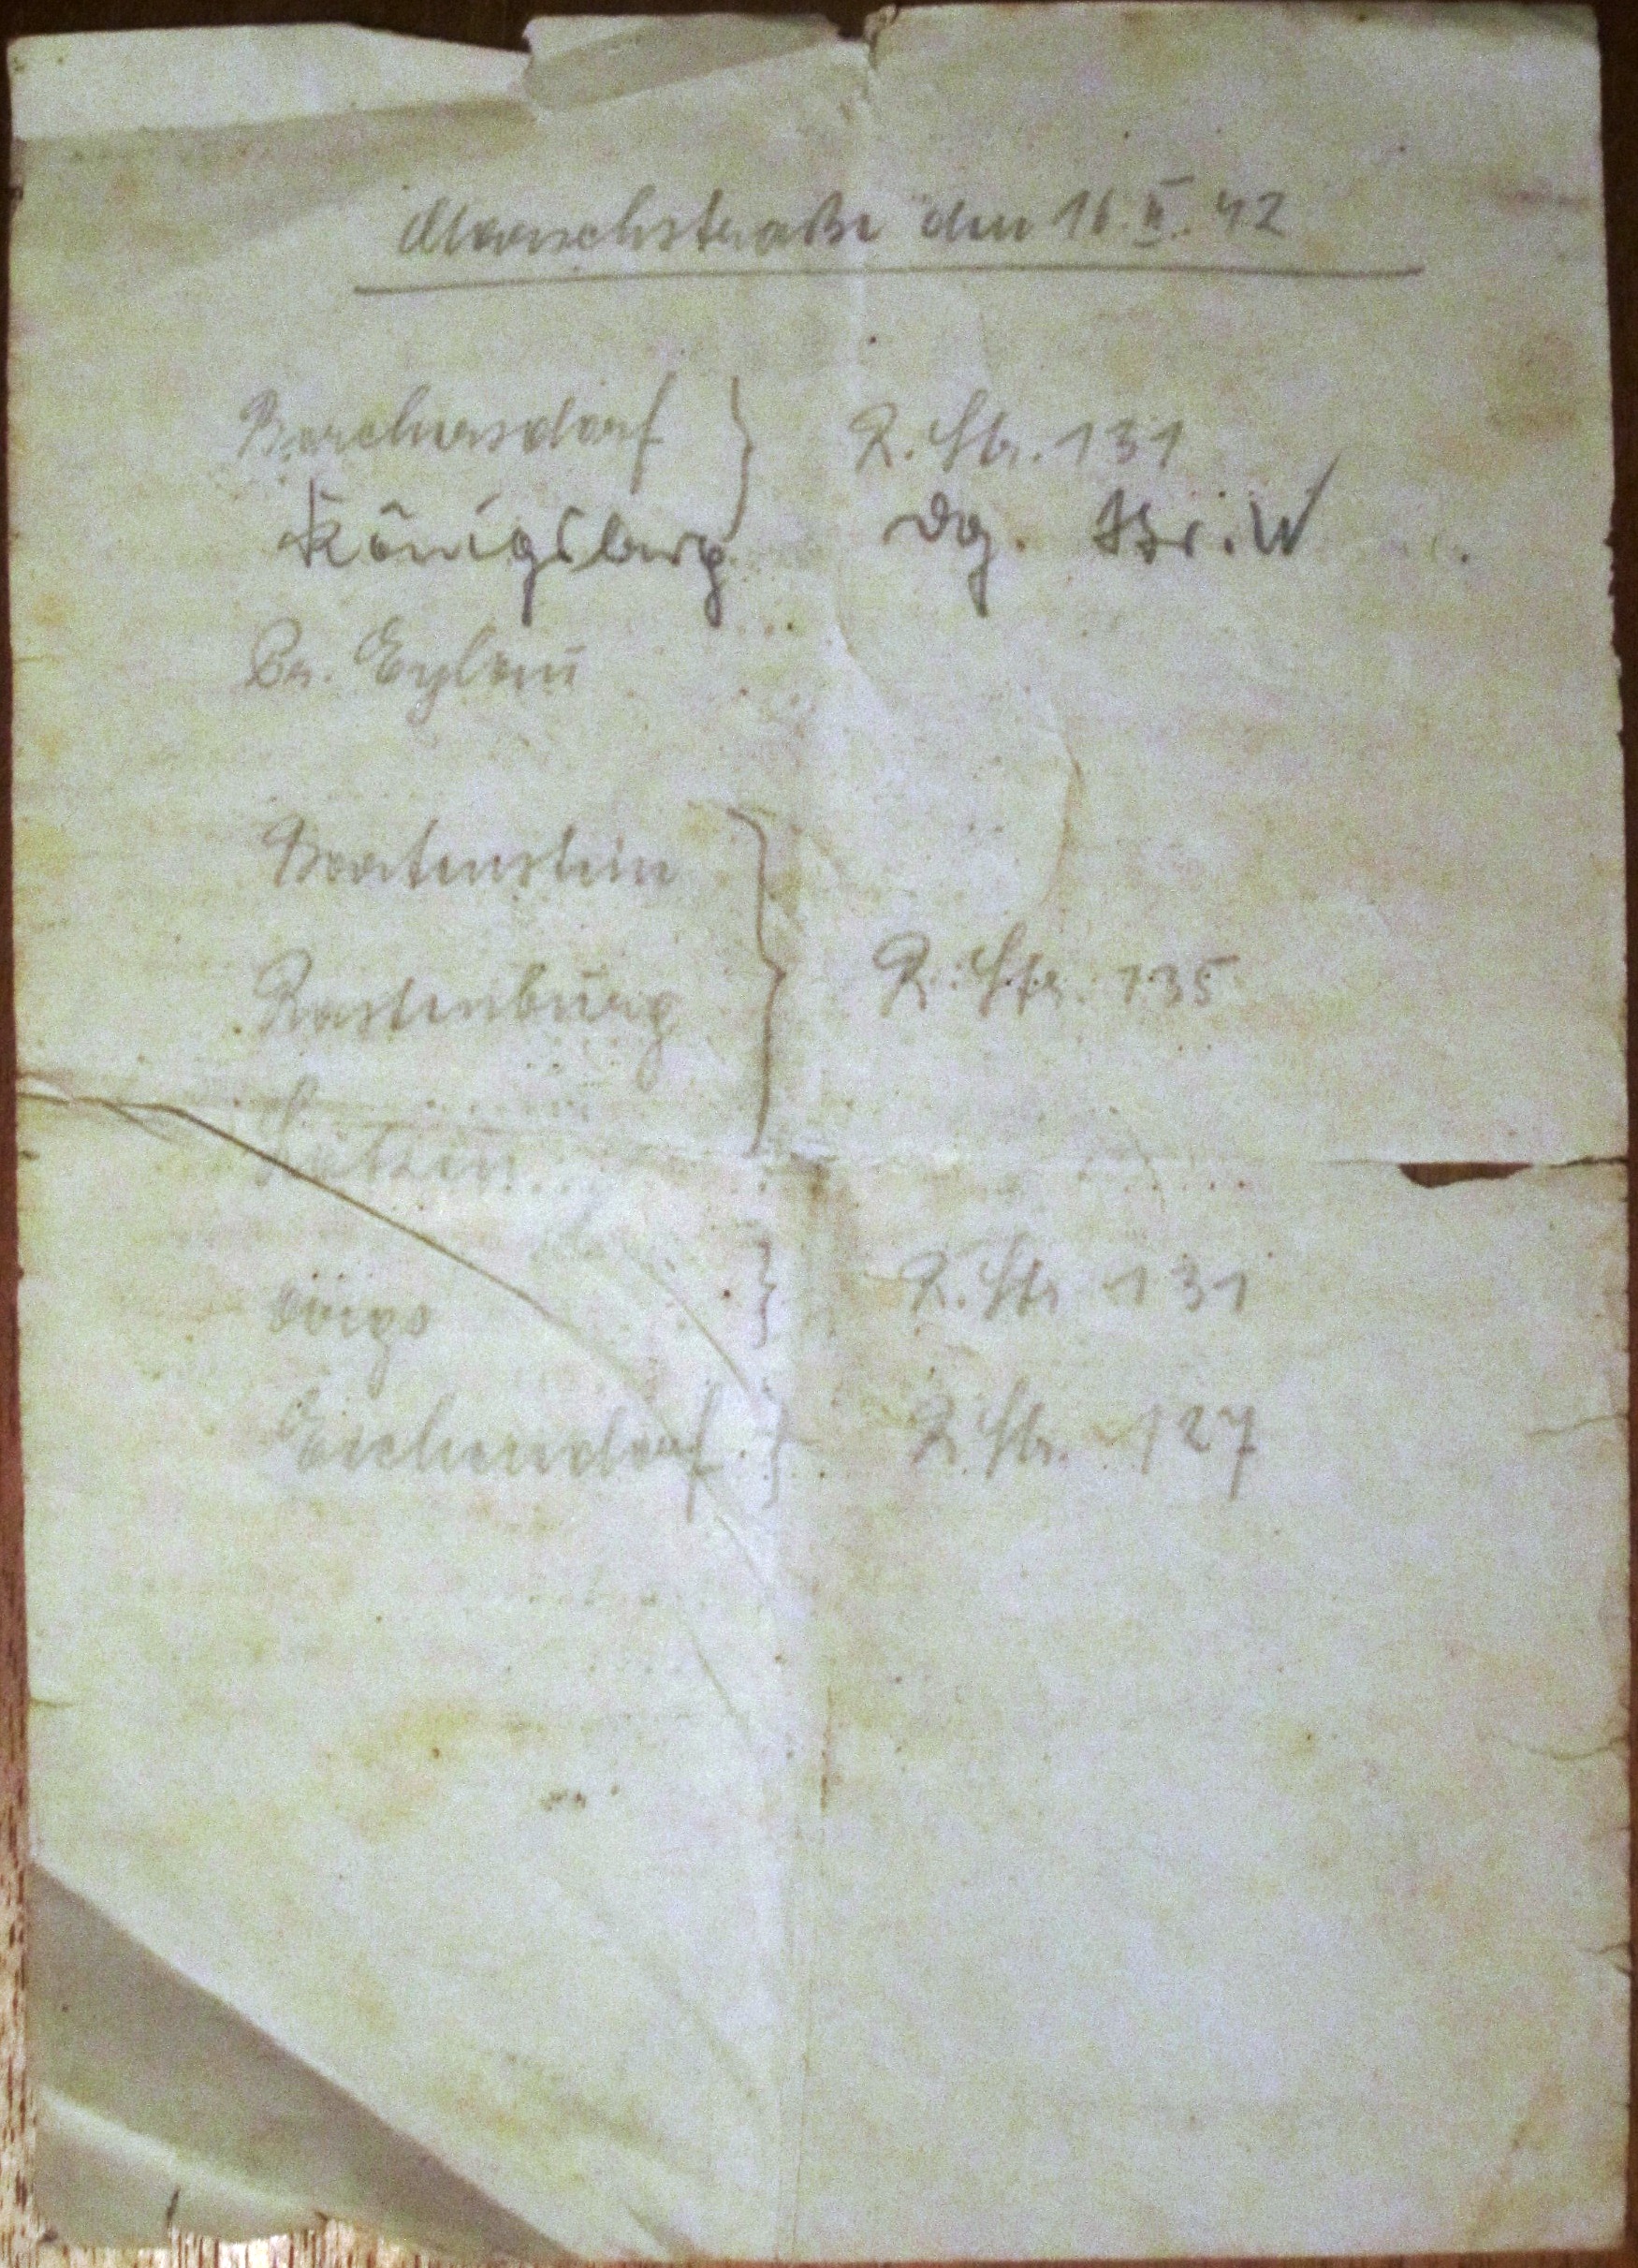 Marschstraße den 16. II. 42
Borchersdorf } R. Str. 131
Königsberg Dg. Str. W
Pr. Eylau
Bartenstein
Rastenburg } R. Str. 135
Lötzen
Arys } R. Str. 131
Eichendorf } R. Str. 127